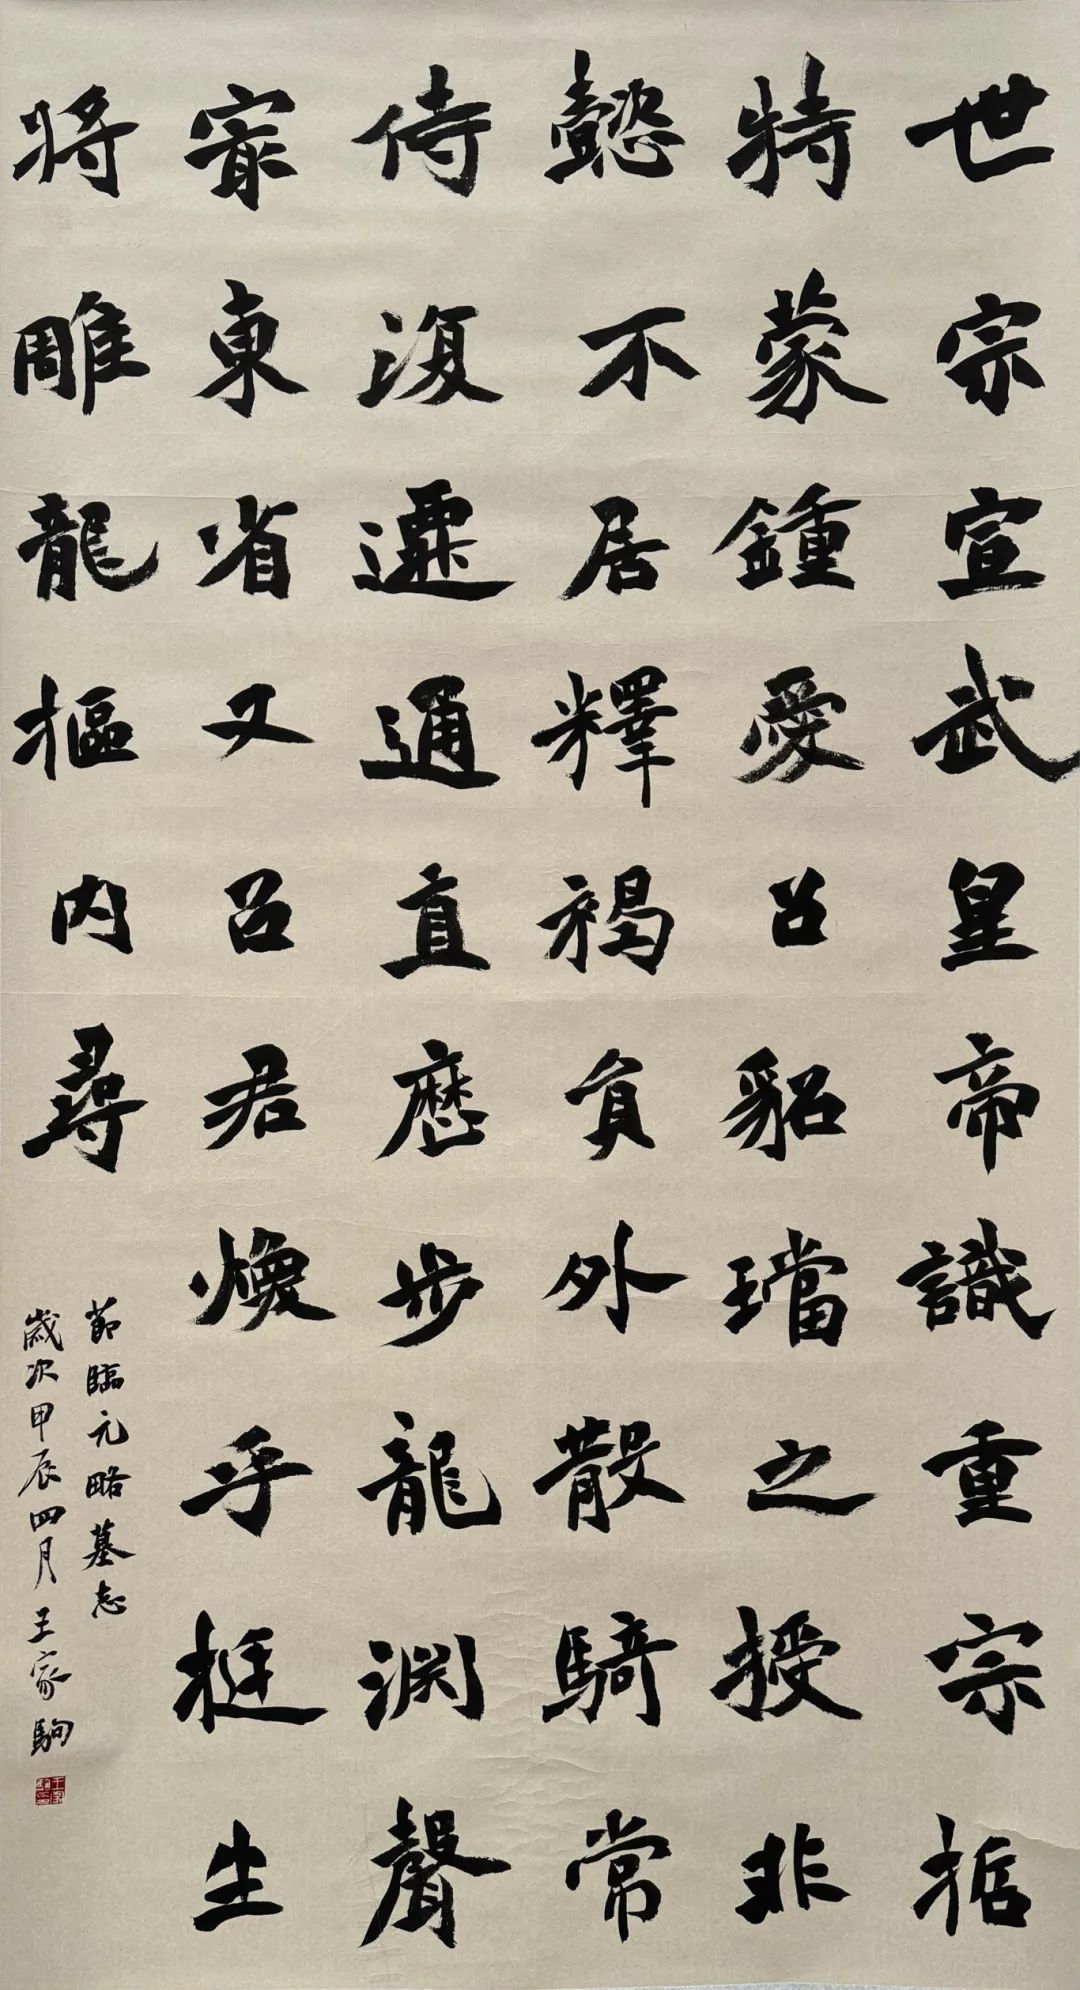 世宗宣武皇帝識重宗㧞
特蒙鍾愛㕣貂璫之授非
懿不居釋褐員外散騎常
侍復遷通直歷步龍淵聲
冣東省又呂君煥乎挺生
將雕龍樞內尋
節臨元略墓志
歲次甲辰四月王家駒